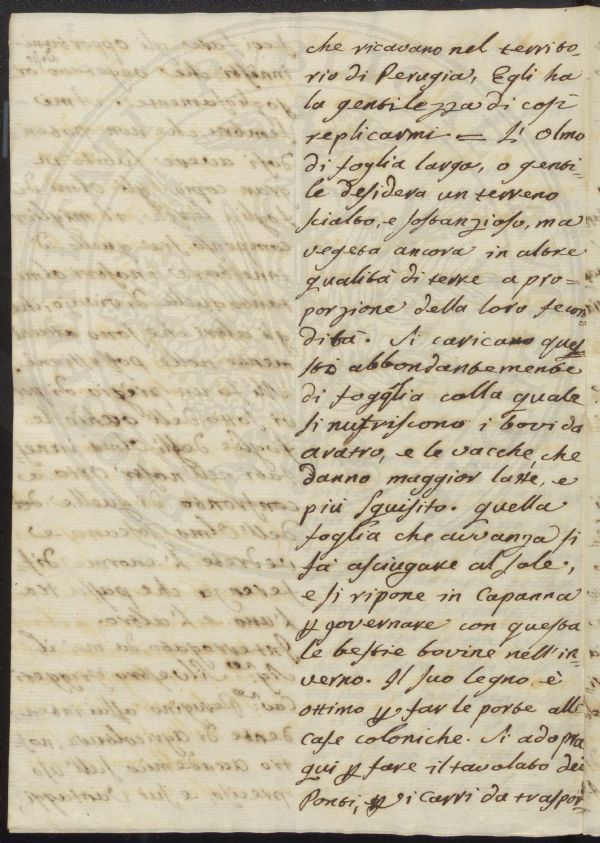 che ricavano nel territo-
rio di Perugia, Egli ha
la gentilezza di così
replicarmi = L'Olmo
di foglia larga, o genti-
le desidera un terreno
scialto, e sostanzioso, ma
vegeta ancora in altre
qualità di terre a pro=
porzione della loro fecon
dità. Si caricano ques
sti abbondantemente
di foglia colla quale
si nutriscono i bovi da
aratro, e le vacche, che
danno maggior latte, e
più squisito. quella
foglia che avvanza si
fà asciugare al sole,
e si ripone in Capanna
p governare con questa
le bestie bovine nell'in-
verno. Il suo legno è
ottimo p far le porte alle
case coloniche. Si adopra
qui p fare il tavolato dei
Ponti, p i carri da traspor-